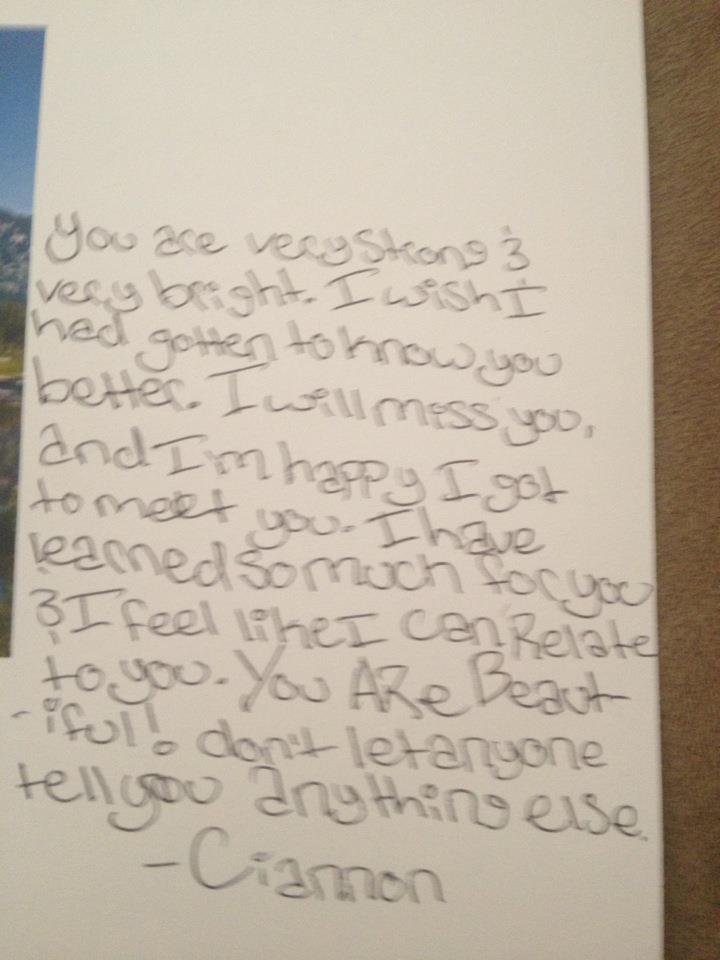 You are very strong &
very bright. I wish I
had gotten to know you
better. I will miss you,
and I'm happy I got
to meet you. I have
learned so much for you
& I feel like I can Relate
to you. You ARe Beaut-
-iful! don't let anyone
tell you anything else.
-Ciannon